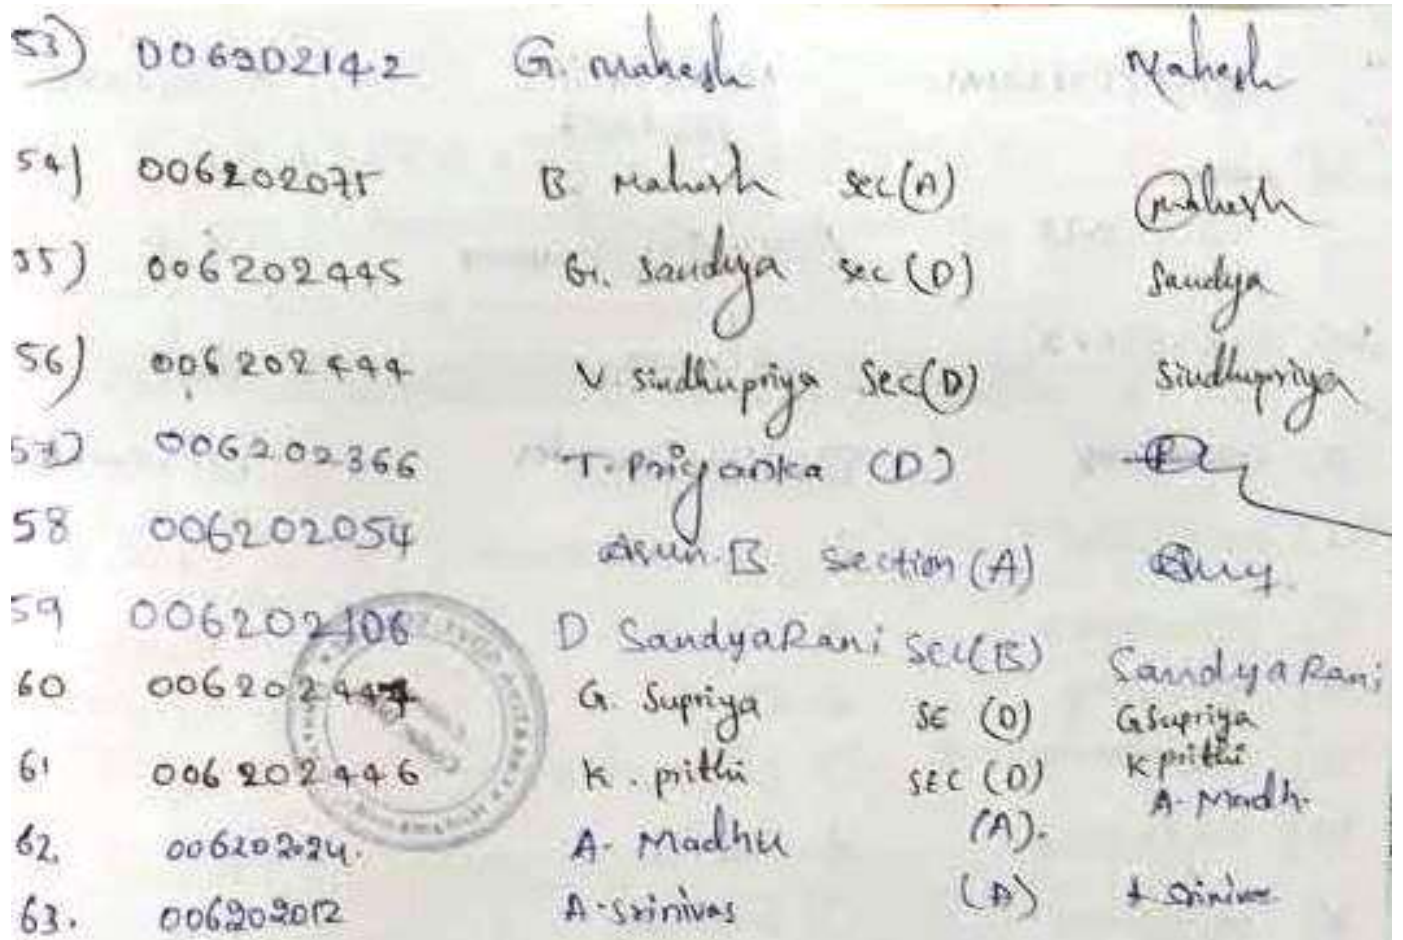 53) 006202142 G. Mahesh Mahesh
54) 006202075 B. Mahesh sec(A) Mahesh
55) 006202445 G. Sandya sec (D) Sandya
56) 006202444 V. Sindhupriya Sec(D) Sindhupriya
57) 006202366 T. Priyanka (D)
58 006202054 Arun. B section (A)
59 006202106 D SandyaRani Sec(B) SandyaRani
60 006202447 G. Supriya SE (D) G Supriya
61 006202446 K. prithi SEC (D) K prithi
62. 006202024. A. Madhu (A). A. Madh.
63. 006202012 A. Srinivas (A) A Srinivas